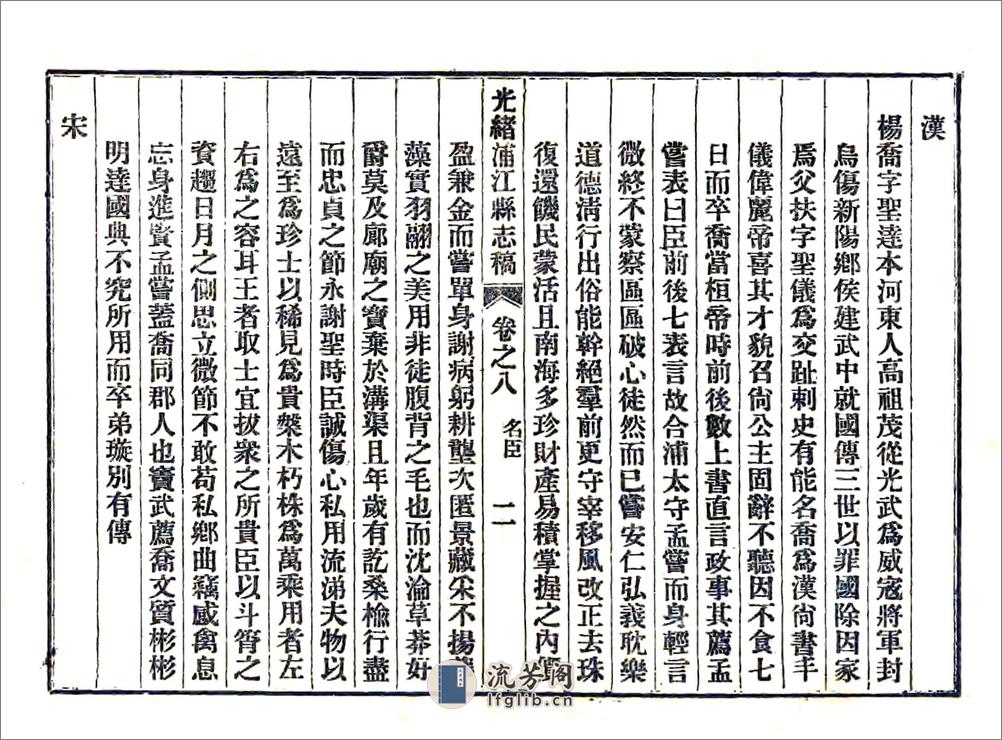 漢
楊喬字聖達本河東人高祖茂從光武爲威寇將軍封
烏傷新陽鄉侯建武中就國傳三世以罪國除因家
焉父扶字聖儀爲交趾刺史有能名喬爲漢尙書丰
儀偉麗帝喜其才貌召尙公主固辭不聽因不食七
日而卒喬當桓帝時前後數上書直言政事其薦孟
嘗表曰臣前後七表言故合浦太守孟嘗而身輕言
微終不蒙察區區破心徒然而已嘗安仁弘義耽樂
道德淸行出俗能幹絕羣前更守宰移風改正去珠
復還饑民蒙活且南海多珍財產易積掌握之內價
光緒浦江縣志稿 卷之八 名臣 二
盈兼金而嘗單身謝病躬耕壟次匿景藏采不揚
藻實羽翮之美用非徒腹背之毛也而沈淪草莽好
爵莫及廊廟之寶棄於溝渠且年歲有訖桑楡行盡
而忠貞之節永謝聖時臣誠傷心私用流涕夫物以
遠至爲珍士以稀見爲貴槃木朽株爲萬乘用者左
右爲之容耳王者取士宜拔衆之所貴臣以斗筲之
資趨日月之側思立微節不敢苟私鄉曲竊感禽息
忘身進賢孟嘗蓋喬同郡人也竇武薦喬文質彬彬
明達國典不究所用而卒弟璇別有傳
宋
流芳阁
lfglib.cn